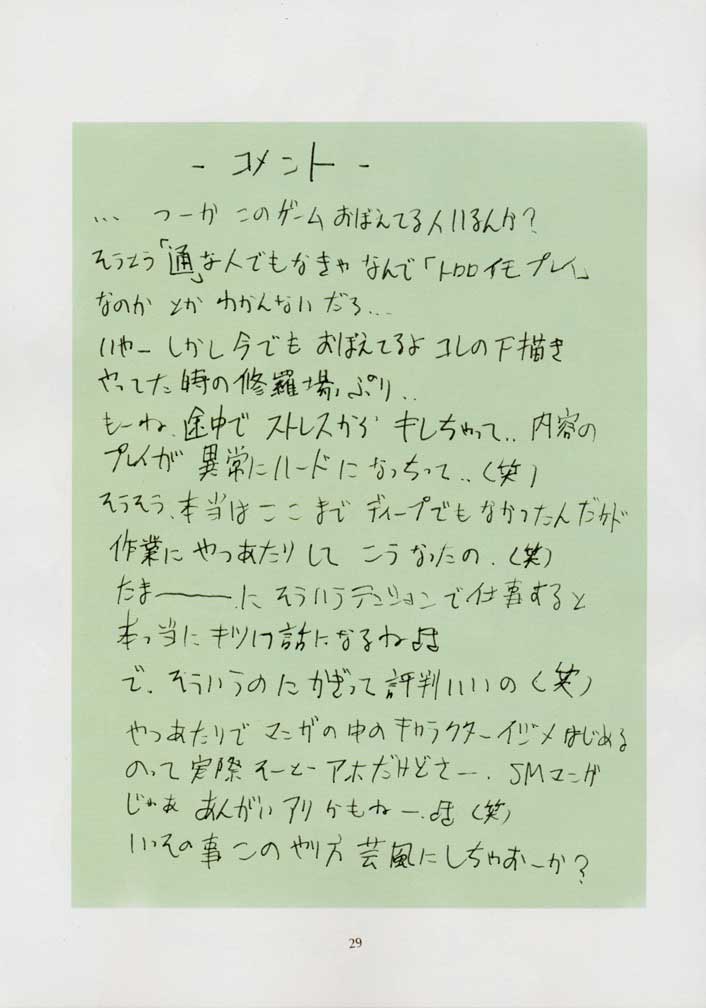 - コメント -
... つーか このゲームおぼえてる人いるんか?
そうとう「通」な人でもなきゃ なんで「トロロイモプレイ」
なのか とか わかんないだろ...
いやー しかし今でも おぼえてるよ コレの下描き
やってた時の修羅場っぷり..
もーね、途中で ストレスから キレちゃって.. 内容の
プレイが 異常にハードに なっちって..(笑)
そうそう、本当は ここまで ディープでもなかったんだけど
作業に やつあたりして こうなったの.(笑)
たま────.に そういうテンションで仕事すると
本っ当に キツい話になるね♪♬
で、そういうのにかぎって評判いいの(笑)
やつあたりで マンガの中のキャラクターイジメはじめる
のって 実際 そーとーアホだけどさー. SMマンガ
じゃあ あんがい アリかもねー.♪♬(笑)
いっその事 このやり方 芸風にしちゃおーか?
29